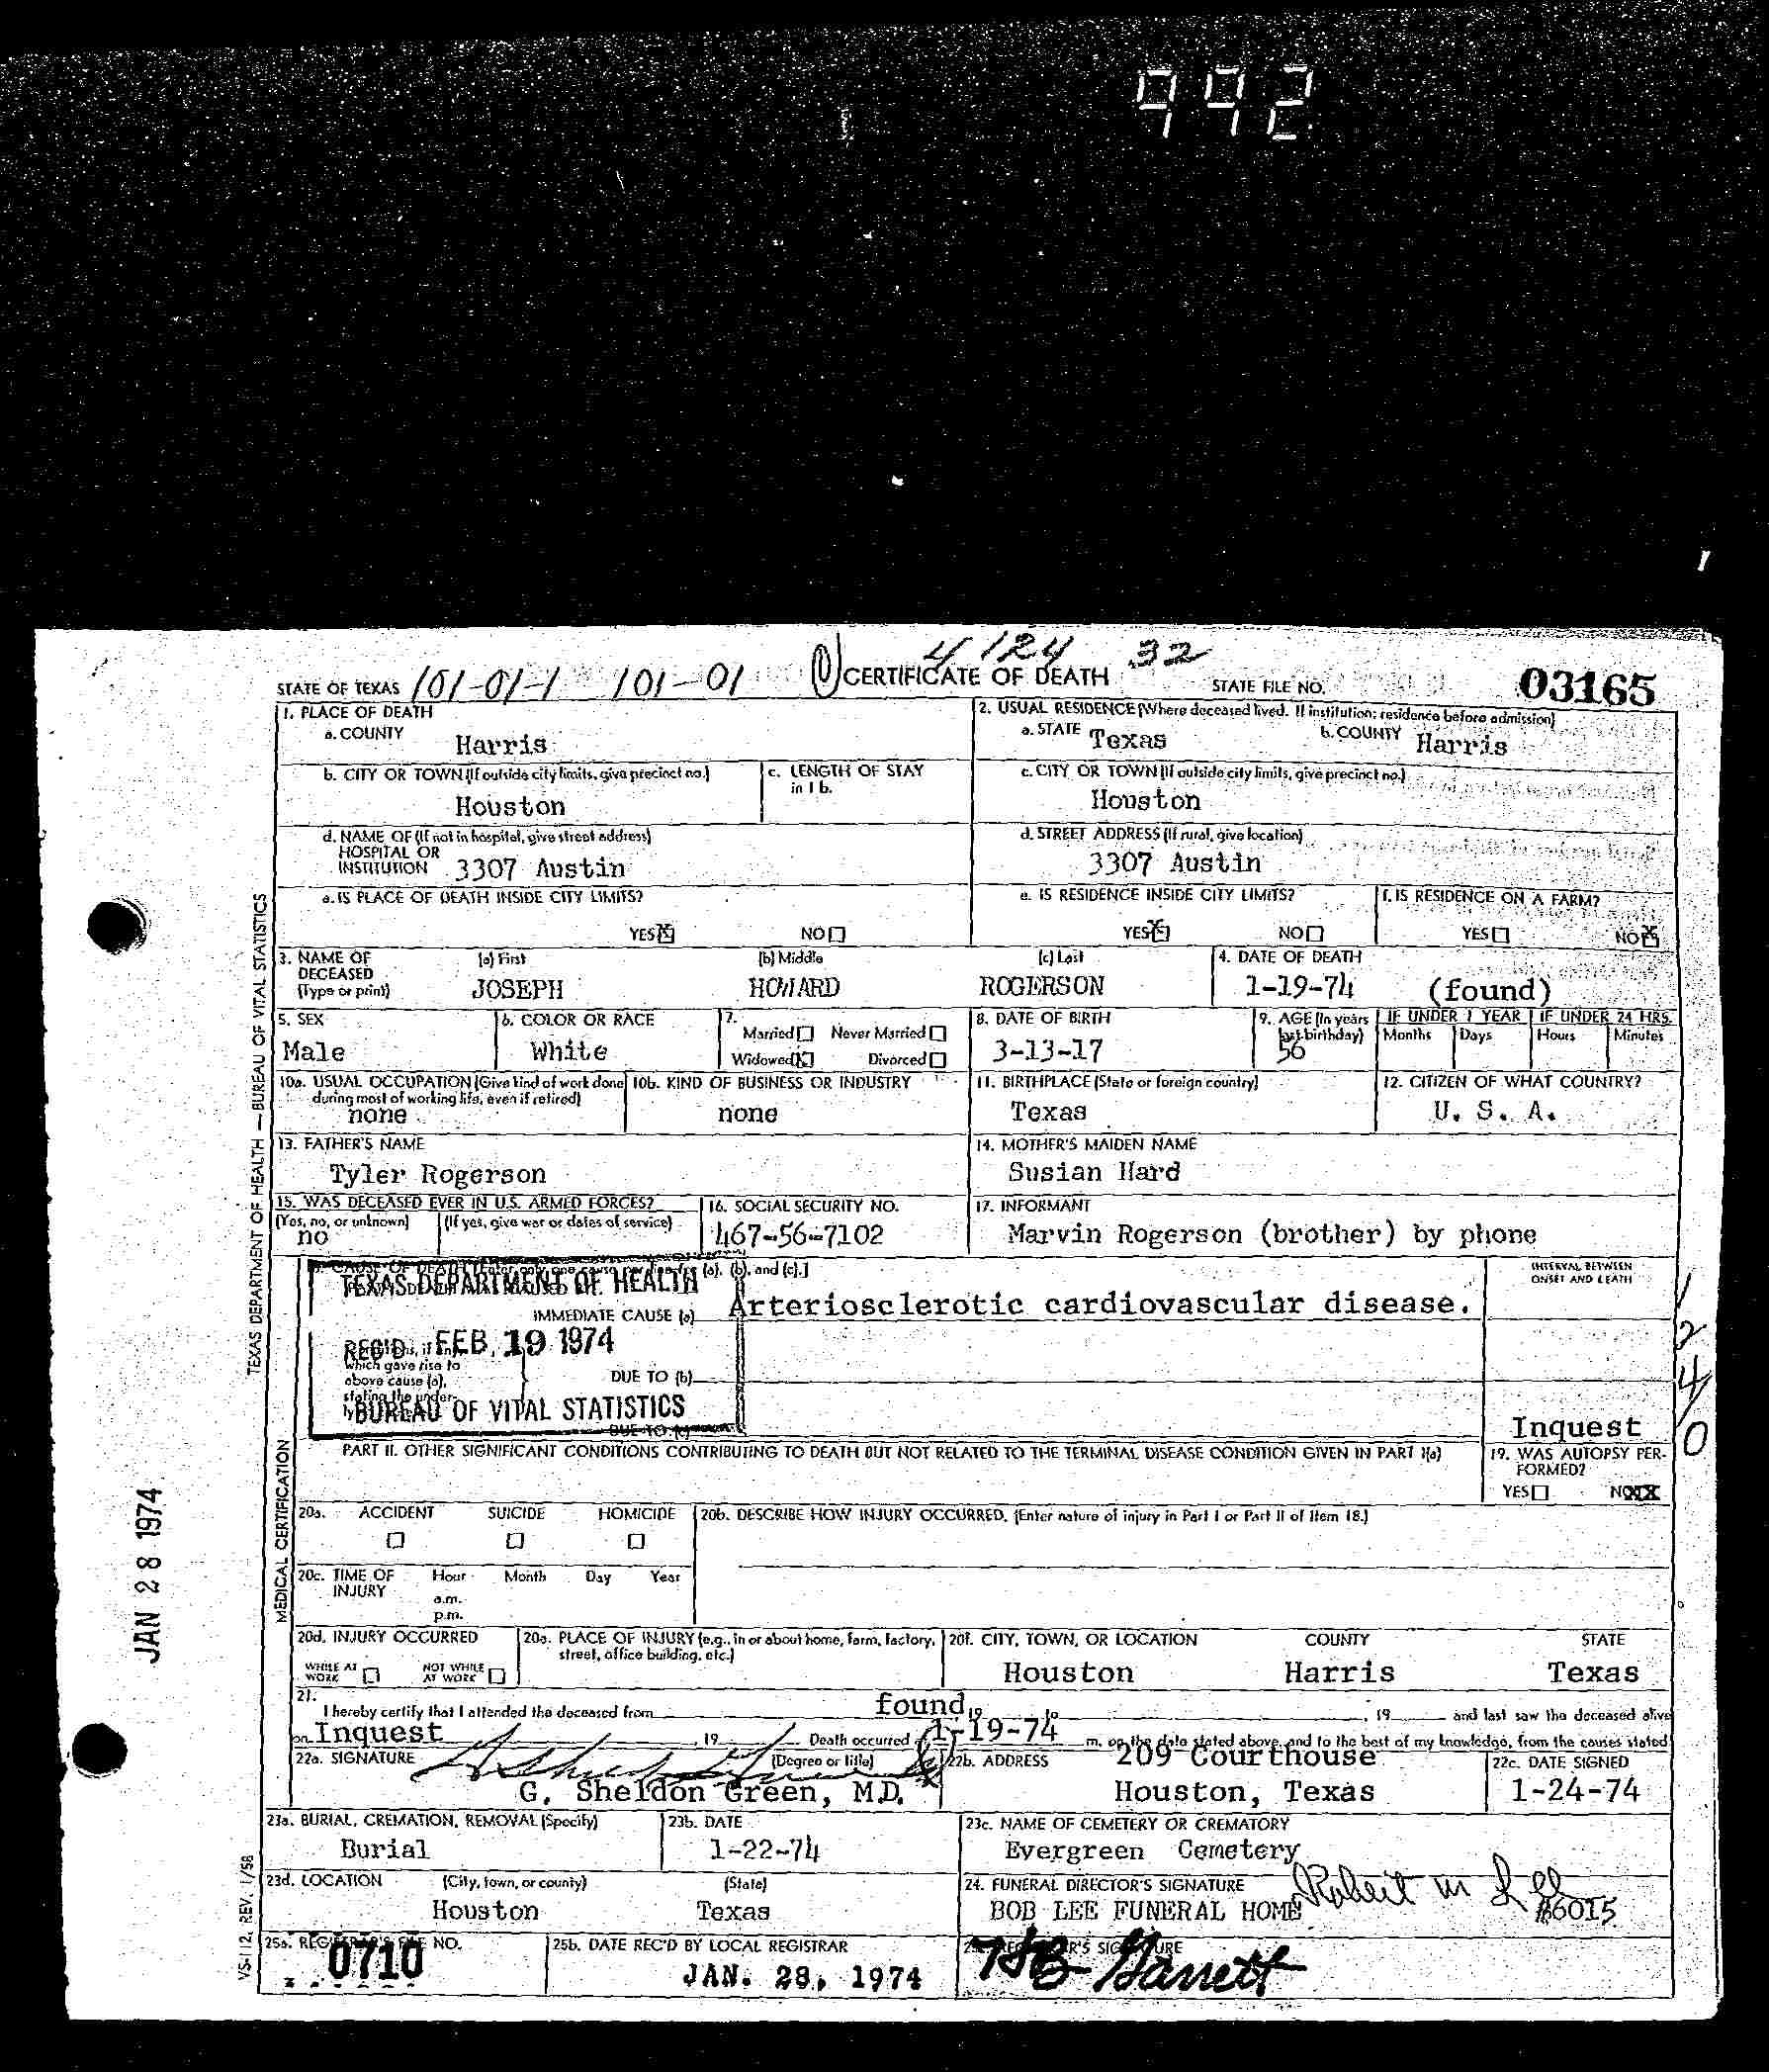 992
STATE OF TEXAS 101-01-1 101-01 CERTIFICATE OF DEATH 4124 32 STATE FILE NO. 03165
1. PLACE OF DEATH
a. COUNTY Harris
2. USUAL RESIDENCE (Where deceased lived. If institution: residence before admission)
a. STATE Texas b. COUNTY Harris
b. CITY OR TOWN (If outside city limits, give precinct no.) Houston
c. LENGTH OF STAY in 1 b.
c. CITY OR TOWN (If outside city limits, give precinct no.) Houston
d. NAME OF (If not in hospital, give street address)
HOSPITAL OR
INSTITUTION 3307 Austin
d. STREET ADDRESS (If rural, give location)
3307 Austin
e. IS PLACE OF DEATH INSIDE CITY LIMITS?
YES X NO
e. IS RESIDENCE INSIDE CITY LIMITS?
YES X NO
f. IS RESIDENCE ON A FARM?
YES NO X
3. NAME OF DECEASED (Type or print)
(a) First JOSEPH
(b) Middle HOWARD
(c) Last ROGERSON
4. DATE OF DEATH
1-19-74 (found)
5. SEX
Male
6. COLOR OR RACE
White
7. Married Never Married
Widowed X Divorced
8. DATE OF BIRTH
3-13-17
9. AGE (In years last birthday)
56
IF UNDER 1 YEAR
Months Days
IF UNDER 24 HRS.
Hours Minutes
10a. USUAL OCCUPATION (Give kind of work done during most of working life, even if retired)
none
10b. KIND OF BUSINESS OR INDUSTRY
none
11. BIRTHPLACE (State or foreign country)
Texas
12. CITIZEN OF WHAT COUNTRY?
U. S. A.
13. FATHER'S NAME
Tyler Rogerson
14. MOTHER'S MAIDEN NAME
Susian Hard
15. WAS DECEASED EVER IN U.S. ARMED FORCES?
(Yes, no, or unknown) (If yes, give war or dates of service)
no
16. SOCIAL SECURITY NO.
467-56-7102
17. INFORMANT
Marvin Rogerson (brother) by phone
CAUSE OF DEATH (Enter only one cause per line for (a), (b), and (c).]
TEXAS DEPARTMENT OF HEALTH
INTERVAL BETWEEN
ONSET AND DEATH
IMMEDIATE CAUSE (a) Arteriosclerotic cardiovascular disease.
REC'D FEB. 19 1974
which gave rise to
above cause (a),
stating the under-
DUE TO (b)
BUREAU OF VITAL STATISTICS
DUE TO (c)
Inquest
1
2
4
0
PART II. OTHER SIGNIFICANT CONDITIONS CONTRIBUTING TO DEATH BUT NOT RELATED TO THE TERMINAL DISEASE CONDITION GIVEN IN PART I(a)
19. WAS AUTOPSY PER-
FORMED?
YES NO XX
20a. ACCIDENT SUICIDE HOMICIDE
20b. DESCRIBE HOW INJURY OCCURRED. (Enter nature of injury in Part I or Part II of Item 18.)
20c. TIME OF INJURY Hour Month Day Year
a.m.
p.m.
20d. INJURY OCCURRED
WHILE AT WORK NOT WHILE AT WORK
20e. PLACE OF INJURY (e.g., in or about home, farm, factory, street, office building, etc.)
20f. CITY, TOWN, OR LOCATION COUNTY STATE
Houston Harris Texas
21.
I hereby certify that I attended the deceased from found 19 to , 19 and last saw the deceased alive
on Inquest , 19 Death occurred 1-19-74 m. on the date stated above, and to the best of my knowledge, from the causes stated
22a. SIGNATURE (Degree or title)
G. Sheldon Green, M.D.
22b. ADDRESS 209 Courthouse
Houston, Texas
22c. DATE SIGNED
1-24-74
23a. BURIAL, CREMATION, REMOVAL (Specify)
Burial
23b. DATE
1-22-74
23c. NAME OF CEMETERY OR CREMATORY
Evergreen Cemetery
23d. LOCATION (City, town, or county) (State)
Houston Texas
24. FUNERAL DIRECTOR'S SIGNATURE Robert M Lee
BOB LEE FUNERAL HOME #6015
25a. REGISTRAR'S FILE NO.
0710
25b. DATE REC'D BY LOCAL REGISTRAR
JAN. 28, 1974
REGISTRAR'S SIGNATURE
Garrett
TEXAS DEPARTMENT OF HEALTH — BUREAU OF VITAL STATISTICS
MEDICAL CERTIFICATION
VS-112, REV. 1/58
JAN 28 1974